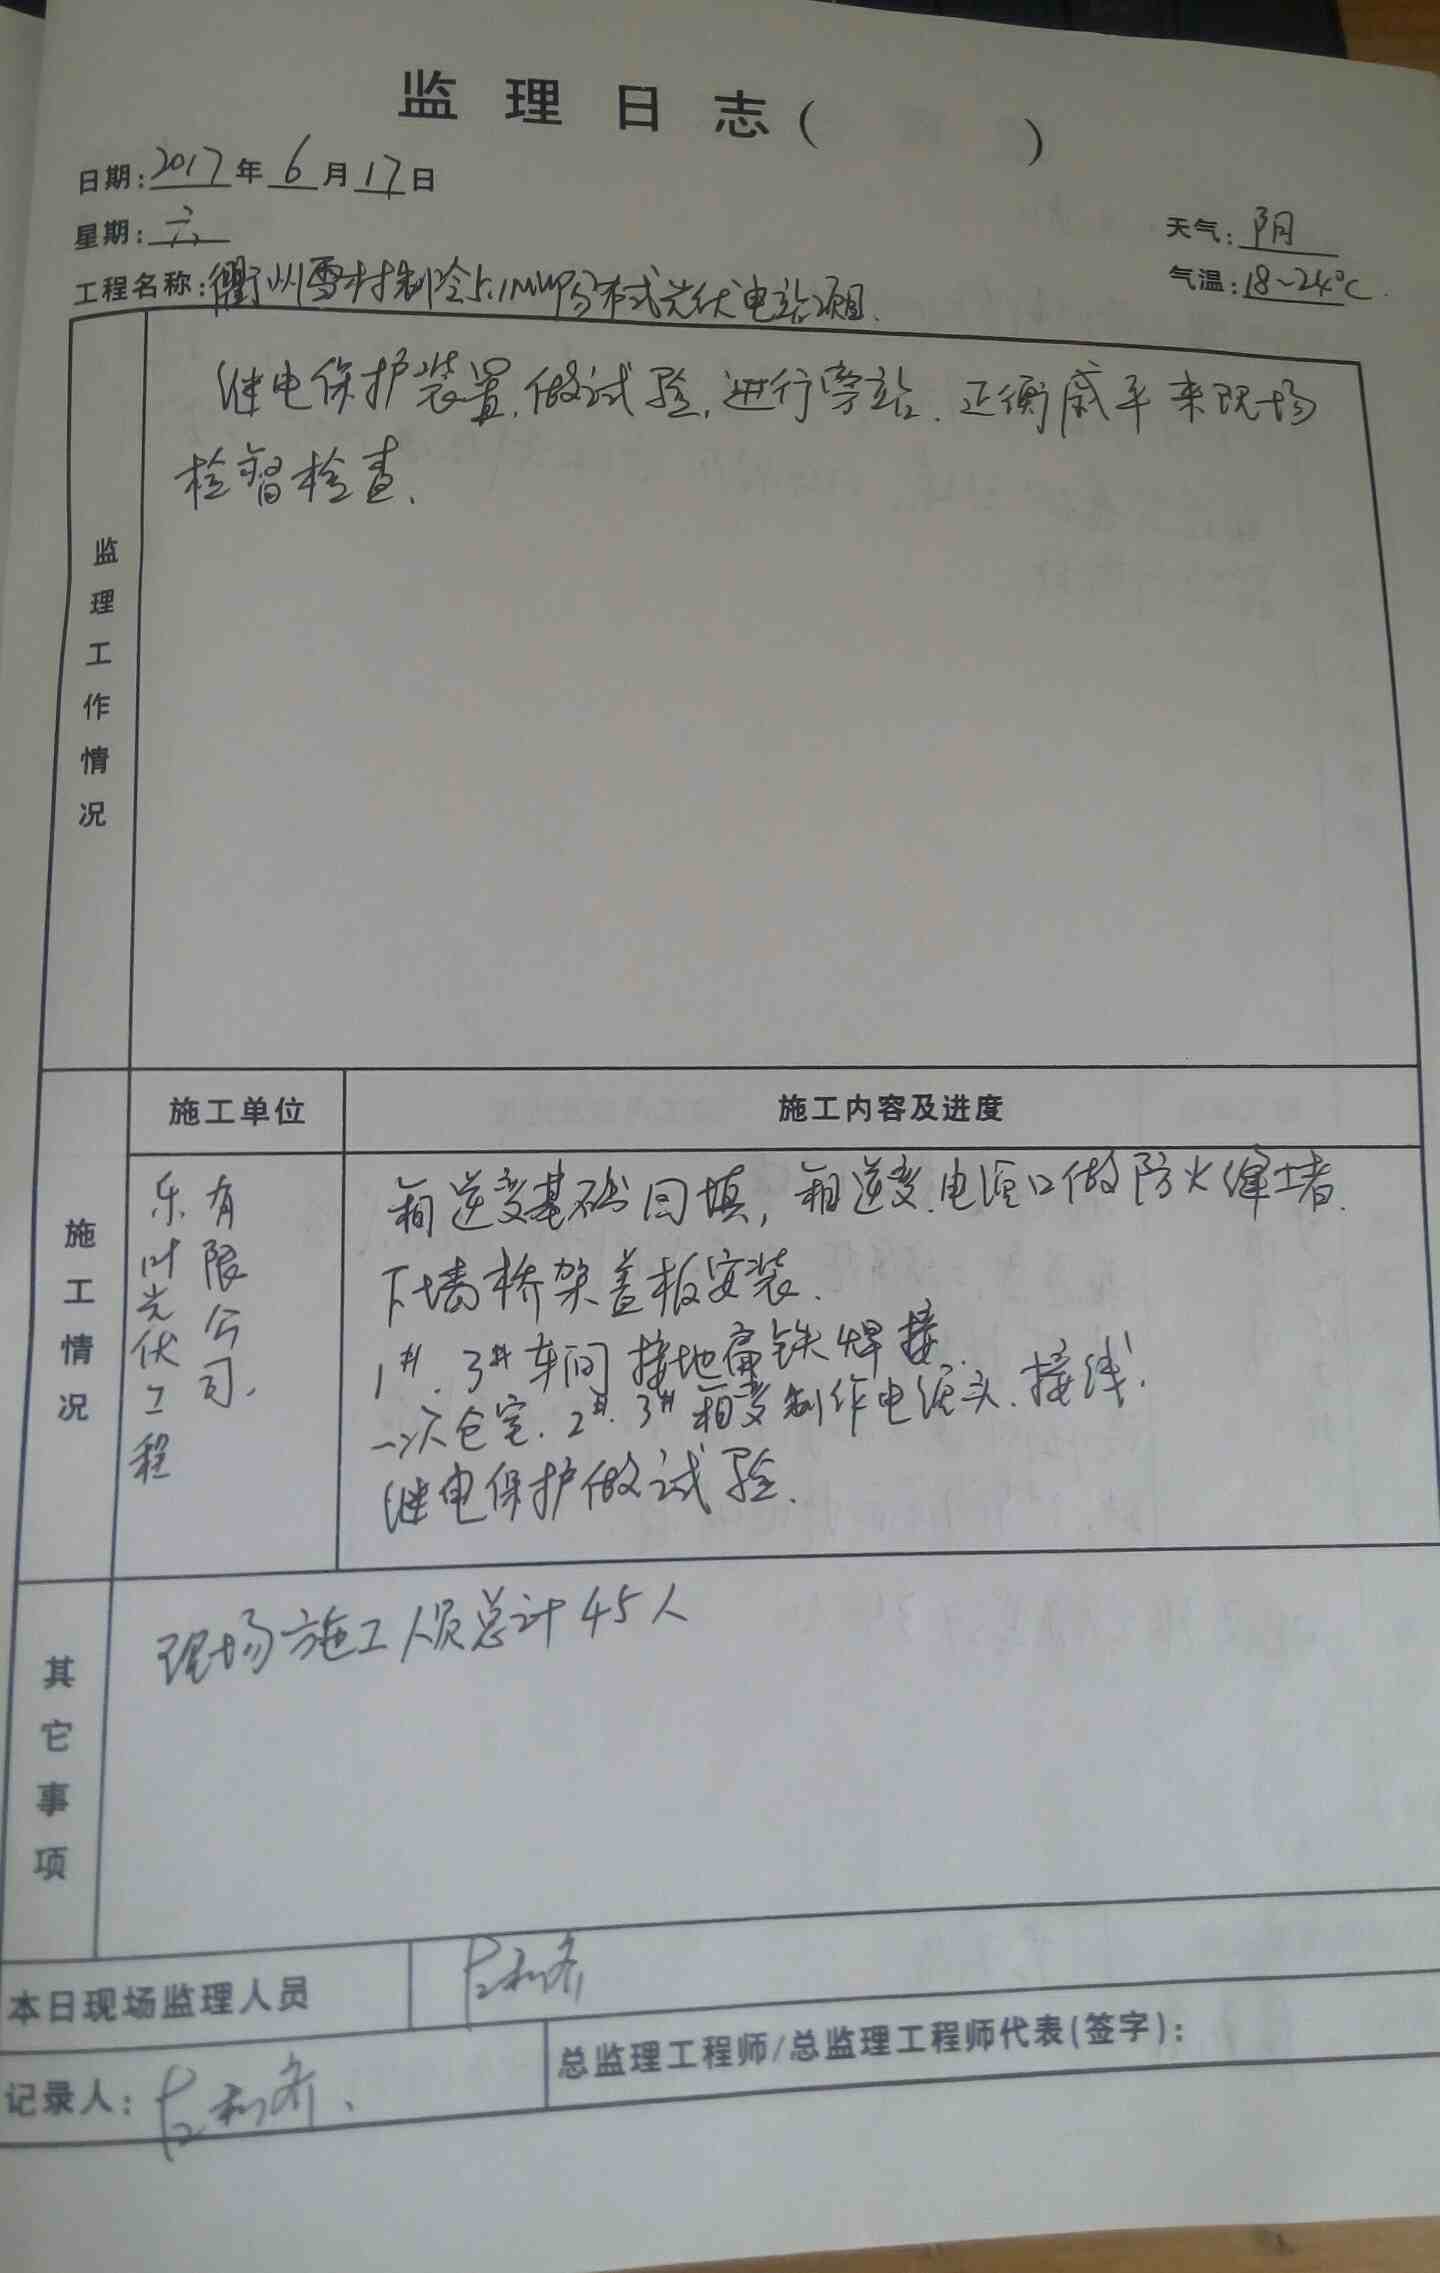 监理日志(　　)
日期:2017年6月17日
星期:六
天气:阴
工程名称:衢州雪村制冷5.1MWP分布式光伏电站项目.
气温:18~24℃.
监理工作情况
继电保护装置.做试验.进行旁站.正衡 来现场
检查.
施工单位
施工内容及进度
施工情况
乐叶光伏工程
有限公司.
箱逆变基础回填,箱逆变.电缆口做防火封堵.
下墙桥架盖板安装.
1#.3#车间接地扁铁焊接.
一次仓室.2#.3#箱变制作电缆头.接线.
继电保护做试验.
其它事项
现场施工人员总计45人
本日现场监理人员
记录人:
总监理工程师/总监理工程师代表(签字):